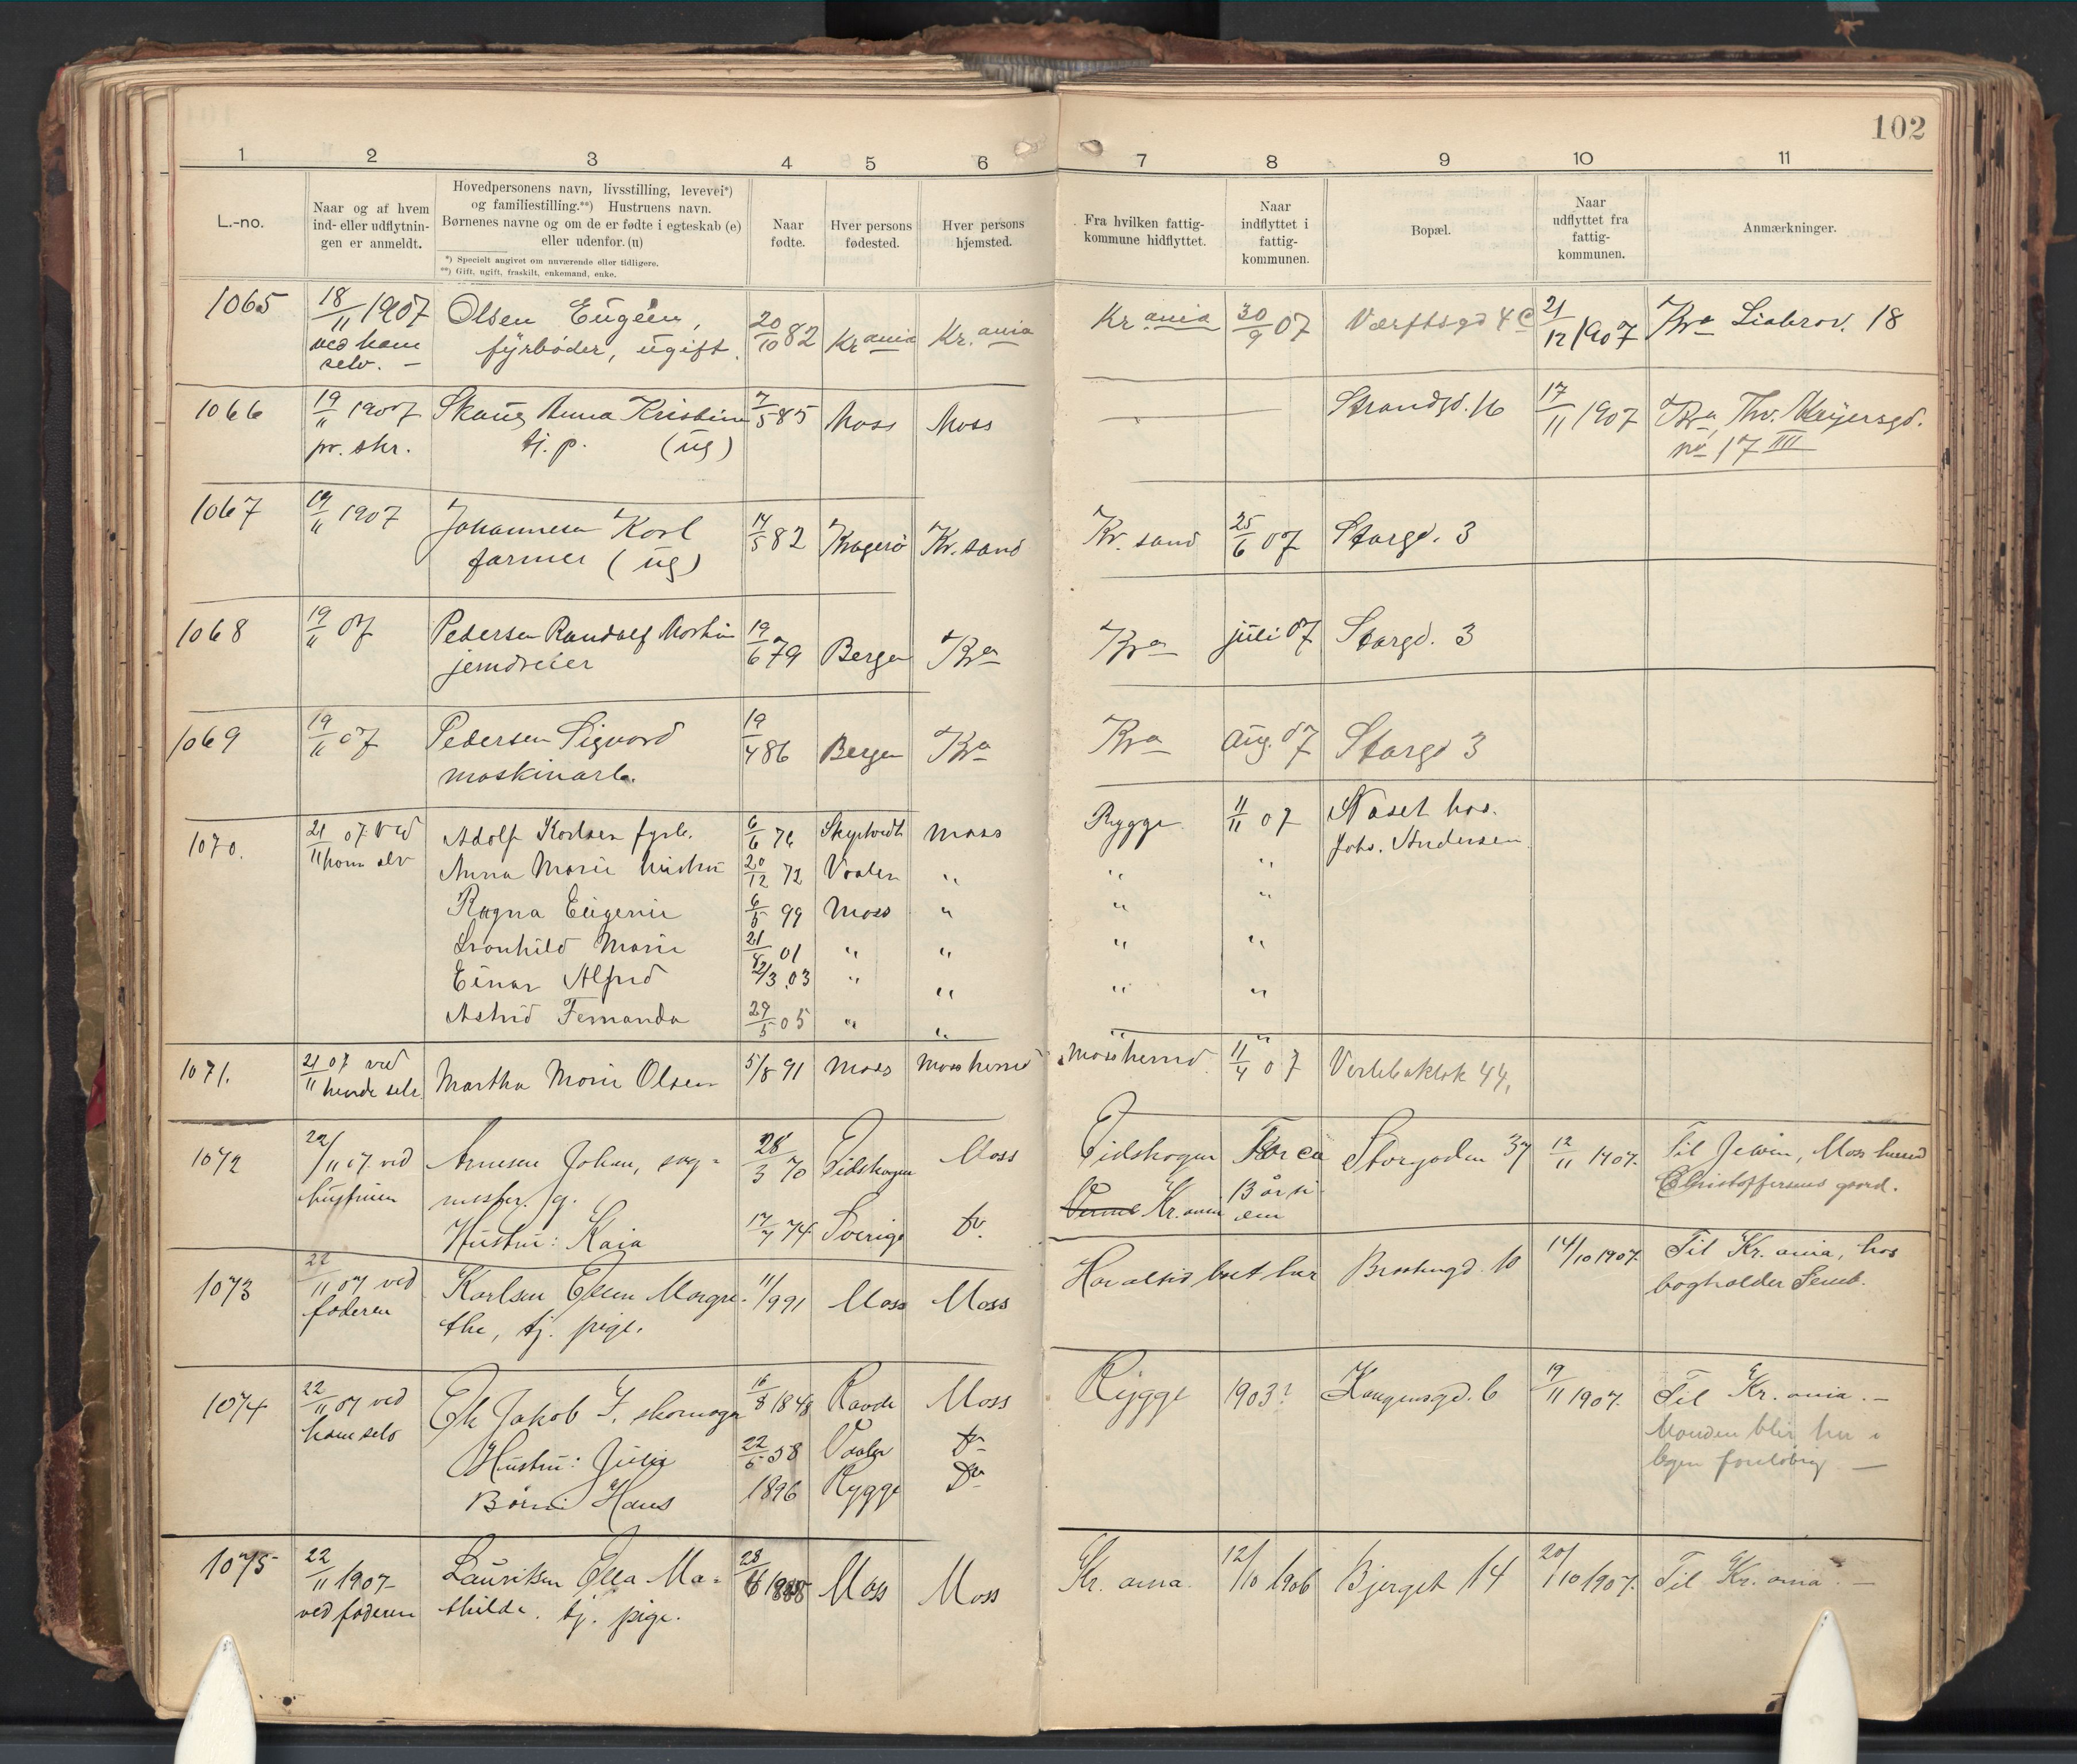 102
1 2 3 4 5 6 7 8 9 10 11
L.-no.
Naar og af hvem
ind- eller udflytnin-
gen er anmeldt.
Hovedpersonens navn, livsstilling, levevei*)
og familiestilling.**) Hustruens navn.
Børnenes navne og om de er fødte i egteskab (e)
eller udenfor. (u)
*) Specielt angivet om nuværende eller tidligere.
**) Gift, ugift, fraskilt, enkemand, enke.
Naar
fødte.
Hver persons
fødested.
Hver persons
hjemsted.
Fra hvilken fattig-
kommune hidflyttet.
Naar
indflyttet i
fattig-
kommunen.
Bopæl.
Naar
udflyttet fra
fattig-
kommunen.
Anmærkninger.
1065 18/11 1907 Olsen Eugén, 20/10 82 Kr.ania Kr.ania Kr ania 30/9 07 Værftsgd 4 c 21/12 1907 Kra Liabrov. 18
ved ham fyrbøder, ugift.
selv. —
1066 19/11 1907 Skaug Anna Kristine 7/5 85 Moss Moss — — Strandgd. 16 17/11 1907 Kra, Thv. Meyersgd.
pr. skr. tj. p. (ug) no 17 III
1067 19/11 1907 Johannesen Karl 14/5 82 Kragerø Kr. sand Kr. sand 25/6 07 Storgd. 3
farmer (ug)
1068 19/11 07 Pedersen Randolf Martin 19/6 79 Bergen Kra Kra juli 07 Storgd. 3
jerndreier
1069 19/11 07 Pedersen Sigvard 19/4 86 Bergen Kra Kra Aug. 07 Storgd 3
maskinarb.
1070. 21/11 07 ved Adolf Karlsen fyrb. 6/6 76 Skiptvedt Moss Rygge 11/11 07 Næset hos.
ham selv Anna Marie hustru 20/12 72 Vaaler " " " Johs. Andersen
Ragna Eugenie 6/5 99 Moss " " "
Svanhild Marie 21/8 01 " " " "
Einar Alfred 2/3 03 " " " "
Astrid Fernanda 29/5 05 " " " "
1071. 21/11 07 ved Martha Marie Olsen 5/8 91 Moss Moss herred Moss herred. 11/4 07 Verlebakløk 44,
hende selv
1072 22/11 07 ved Arnesen Johan, sag- 28/3 70 Eidskogen Moss Eidskogen For ca Storgaden 37 12/11 1907. Til Jeløen, Moss herred
hustruen mester. g. Kr. ania 13 år si- Christoffersens gaard.
Hustru: Kaia 17/7 74 Sverige Do. den
1073 22/11 07 ved Karlsen Ellen Margre- 11/9 91 Moss Moss Har altid boet her 10 14/10 1907. Til Kr. ania, hos
faderen the, tj. pige. bogholder Semb.
1074 22/11 07 ved Ek Jakob F. skomager 16/8 1848 Raade Moss Rygge 1903? Kongensgd. 6 19/11 1907. Til Kr. ania. —
ham selv Hustru: Julie 22/5 58 Vaaler Do Manden blir her i
Børn: Hans 1896 Rygge Do byen foreløbig —
1075 22/11 1907 Lauritsen Ella Ma- 28/6 1888 Moss Moss Kr. ania. 12/10 1906 Bjerget 14 20/10 1907. Til Kr. ania. —
ved faderen thilde. tj. pige.